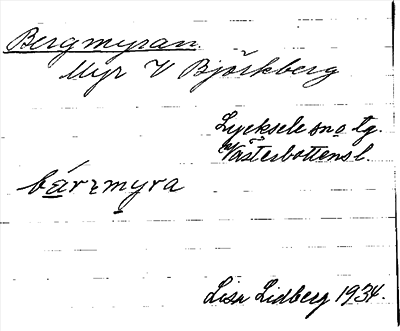 Bergmyran.
Myr V Björkberg
Lycksele sno tg.
Västerbottens l.
bárzmyra
Lisa Lidberg 1934.